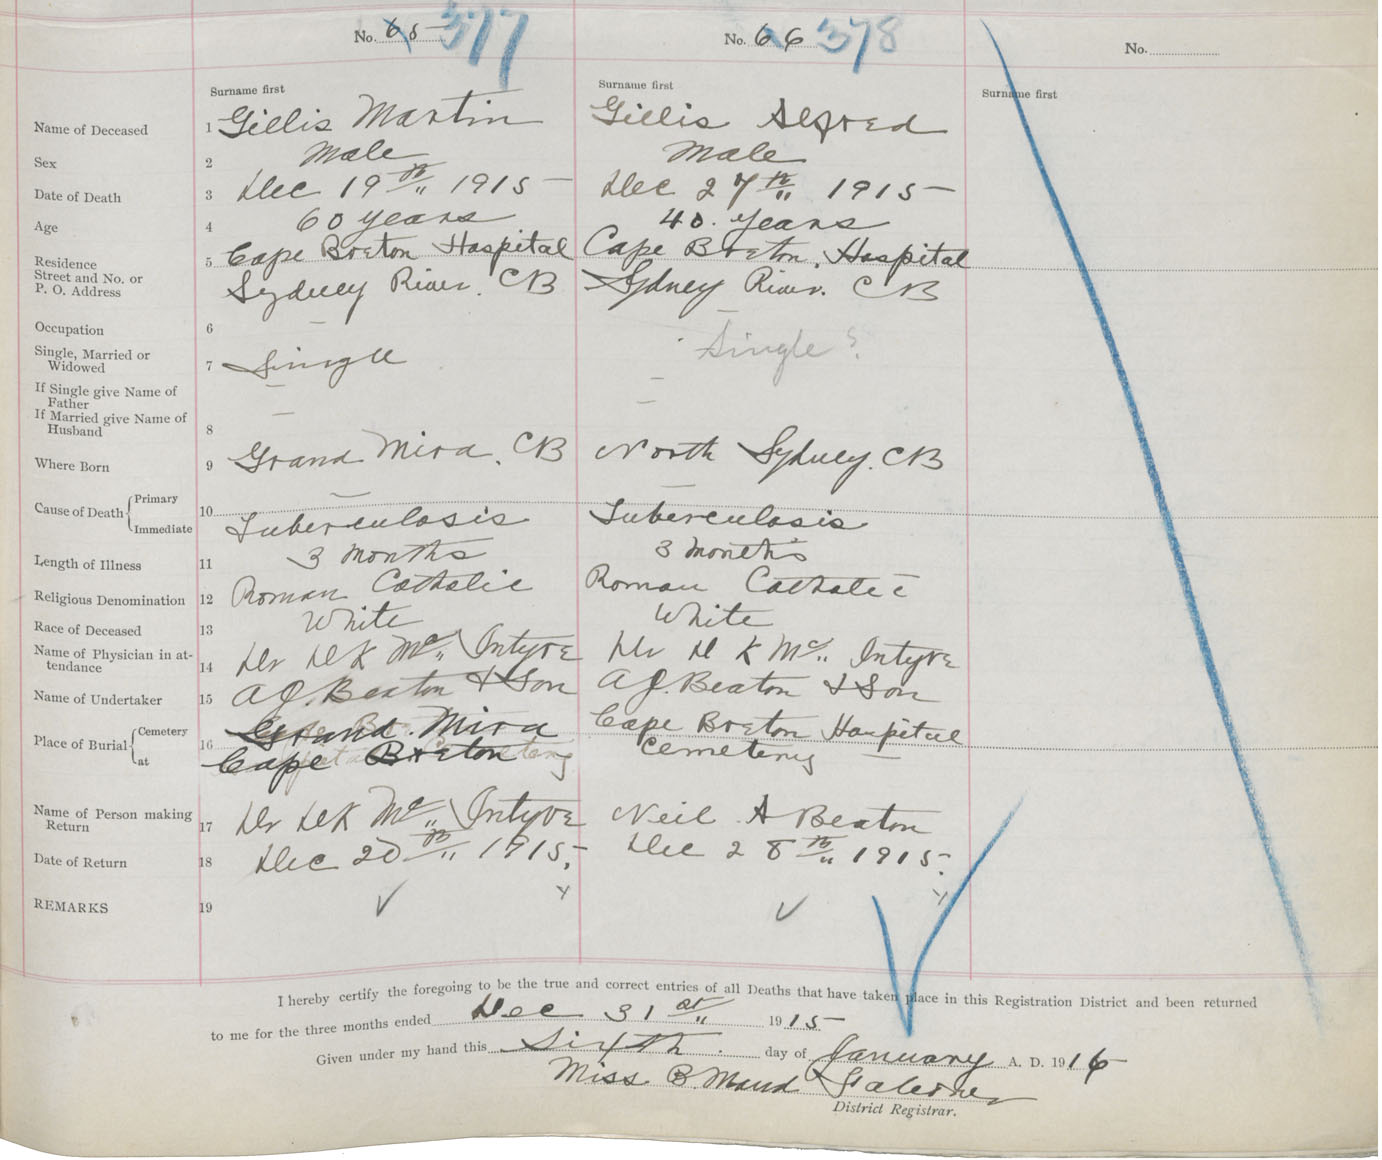 No. 65 377 No. 66 378 No.
Surname first Surname first Surname first
Name of Deceased 1 Gillis Martin Gillis Alfred
Sex 2 Male Male
Date of Death 3 Dec 19th 1915 Dec 27th 1915
Age 4 60 years 40 years
Residence 5 Cape Breton Hospital Cape Breton, Hospital
Street and No. or
P. O. Address Sydney River. CB Sydney River. CB
Occupation 6 — —
Single, Married or
Widowed 7 Single Single ?
If Single give Name of
Father — —
If Married give Name of
Husband 8 — —
Where Born 9 Grand Mira, CB North Sydney. CB
Cause of Death { Primary 10 — —
Immediate Tuberculosis Tuberculosis
Length of Illness 11 3 months 3 months
Religious Denomination 12 Roman Catholic Roman Catholic
Race of Deceased 13 White White
Name of Physician in at-
tendance 14 Dr D K Mc Intyre Dr D K Mc Intyre
Name of Undertaker 15 A J. Beaton & Son A J. Beaton & Son
Place of Burial { Cemetery 16 Grand Mira Cape Breton Hospital
at Cape Breton Cemetery —
Name of Person making
Return 17 Dr D K Mc Intyre Neil A Beaton
Date of Return 18 Dec 20th 1915. Dec 28th 1915.
REMARKS 19
I hereby certify the foregoing to be the true and correct entries of all Deaths that have taken place in this Registration District and been returned
to me for the three months ended Dec 31st 1915
Given under my hand this Sixth day of January A. D. 1916
Miss B Maud
District Registrar.